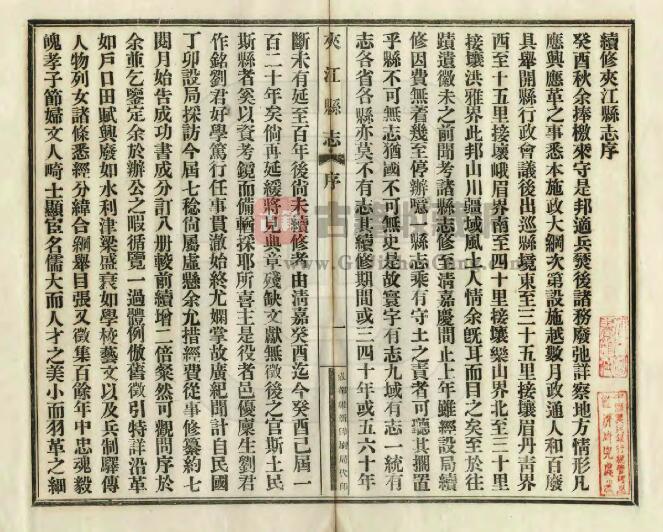 續修夾江縣志序
癸酉秋余捧檄來守是邦適兵燹後諸務廢弛詳察地方情形凡
應興應革之事悉本施政大綱次第設施越數月政通人和百廢
具舉開縣行政會議後出巡縣境東至三十五里接壤眉丹青界
西至十五里接壤峨眉界南至四十里接壤樂山界北至三十里
接壤洪雅界此邦山川疆域風土人情余旣耳而目之矣至於往
蹟遺徽未之前聞考諸縣志修至淸嘉慶間止上年雖經設局續
修因費無着幾至停辦噫縣志乘有守土之責者可聽其擱置
乎縣不可無志猶國不可無史是故寰宇有志九域有志一統有
志各省各縣亦莫不有志其續修期間或三四十年或五六十年
夾江縣志 序 一
斷未有延至百年後尙未續修者由淸嘉癸酉迄今癸酉已屆一
百二十年矣倘再延緩將見典章殘缺文獻無徵後之官斯土民
斯縣者奚以資考鏡而備輶採耶所喜主是役者邑優廩生劉君
作銘劉君好學篤行任事貫澈始終尤嫻掌故廣紀聞計自民國
丁卯設局採訪今屆七稔尙屬虛懸余允措經費從事修纂約七
閱月始告成功書成分訂八册較前續增二倍粲然可觀問序於
余並乞鑒定余於辦公之暇循覽一過體例倣舊徵引特詳沿革
如戶口田賦興廢如水利津梁盛衰如學校藝文以及兵制驛傳
人物列女諸條悉經分緯合綱舉目張又徵集百餘年中忠魂毅
魄孝子節婦文人畸士顯宦名儒大而人才之美小而羽革之細